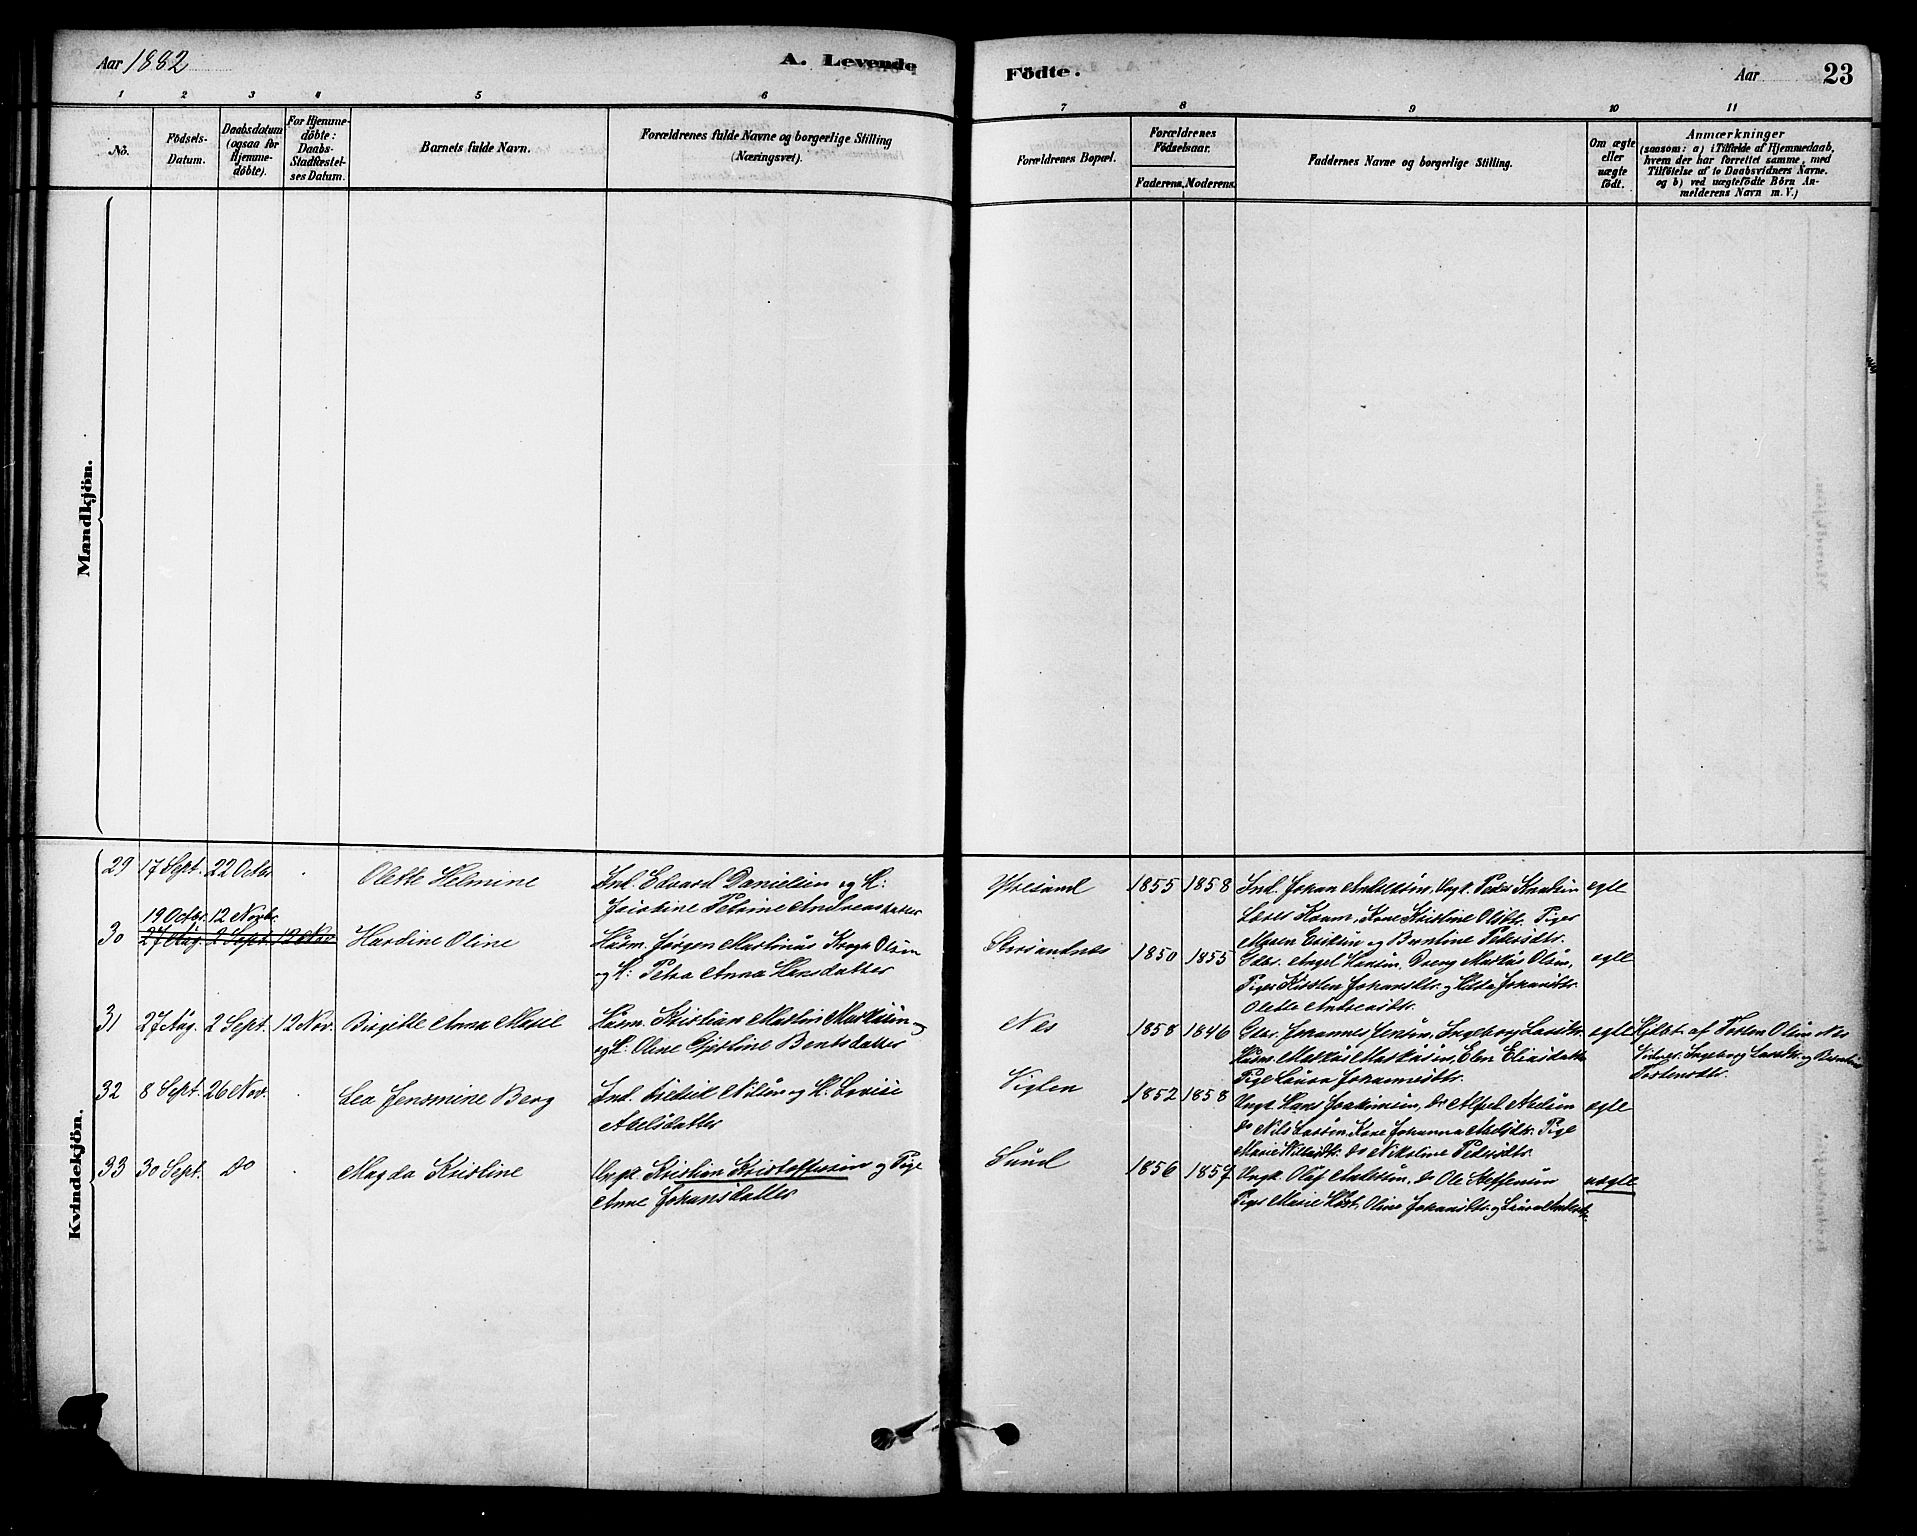 Aar 1882
A. Levende
Födte.
Aar
23
1 2 3 4 5 6 7 8 9 10 11
No.
Födsels-
Datum.
Daabsdatum
(ogsaa for
Hjemme-
döbte).
For Hjemme-
döbte:
Daabs-
Stadfæstel-
ses Datum.
Barnets fulde Navn.
Forældrenes fulde Navne og borgerlige Stilling
(Næringsvei).
Forældrenes Bopæl.
Forældrenes
Födselsaar.
Faderens. Moderens.
Faddernes Navne og borgerlige Stilling.
Om ægte
eller
uægte
födt.
Anmærkninger
(saasom: a) i Tilfælde af Hjemmedaab,
hvem der har forrettet samme, med
Tilföielse af to Daabsvidners Navne.
og b) ved uægtefödte Börn An-
melderens Navn m. V.)
Mandkjön.
Kvindekjön.
29 17 Sept. 22 Octbr
Olette Helmine
Ind. Edvard Danielsen og H:
Jacobine Petrine Andreasdatter
Ytresand
1855 1858
Ind. Johan Andersen, Ungk. Peder Knudsen
Lærer Kvam, Kone Kristine Olsdt. Piger
Maren Eriksen og Berntine Pedersdtr.
egte
30 19 Octbr. 12 Novbr.
27 Aug. 2 Sept. 12 Nov
Hardine Oline
Husm. Jørgen Martinus Krogh Olsen
og H: Petra Anna Hansdatter
1850 1855
Gbr. Angel Hansen, Dreng Markus Olsen,
Piger Kirsten Johansdtr. og Hilda Johansdtr.
Oletta Andreasdtr.
egte
31 27 Aug. 2 Sept. 12 Nov.
Birgitte Anna Marie
Husm. Kristian Martin Markusen og
og H: Oline Gjertine Berntsdatter
Nes
1858 1846
Gbr. Johannes Jensen, Ingeborg Larsdtr.
Husm. Markus Markusen, Elen Eliasdatter
Pige Laura Johannesdtr.
egte
Hjdbt. af Torsten Olsen Nes
Vidner: Ingeborg Larsdtr. og Berntine
Torstensdtr.
32 8 Sept. 26 Nov.
Lea Jensmine Berg
Ind. Fredrik Nilsen og H. Lovise
Axelsdatter
Viglen
1852 1858
Ungk. Hans Joakimsen, do Alfred Axelsen
do Nils Larsen, Kone Johanna Axelsdtr. Pige
Marie Nilsdtr. do Nikoline Pedersdtr.
egte
33 30 Sept. Do
Magda Kristine
Ungk. Kristian Kristoffersen og Pige
Anne Johansdatter
Sund
1856 1857
Ungk. Oluf Andersen, do Ole Steffensen
Piger Marie Høst, Oline Johansdtr. og Laura Andersdtr.
uegte